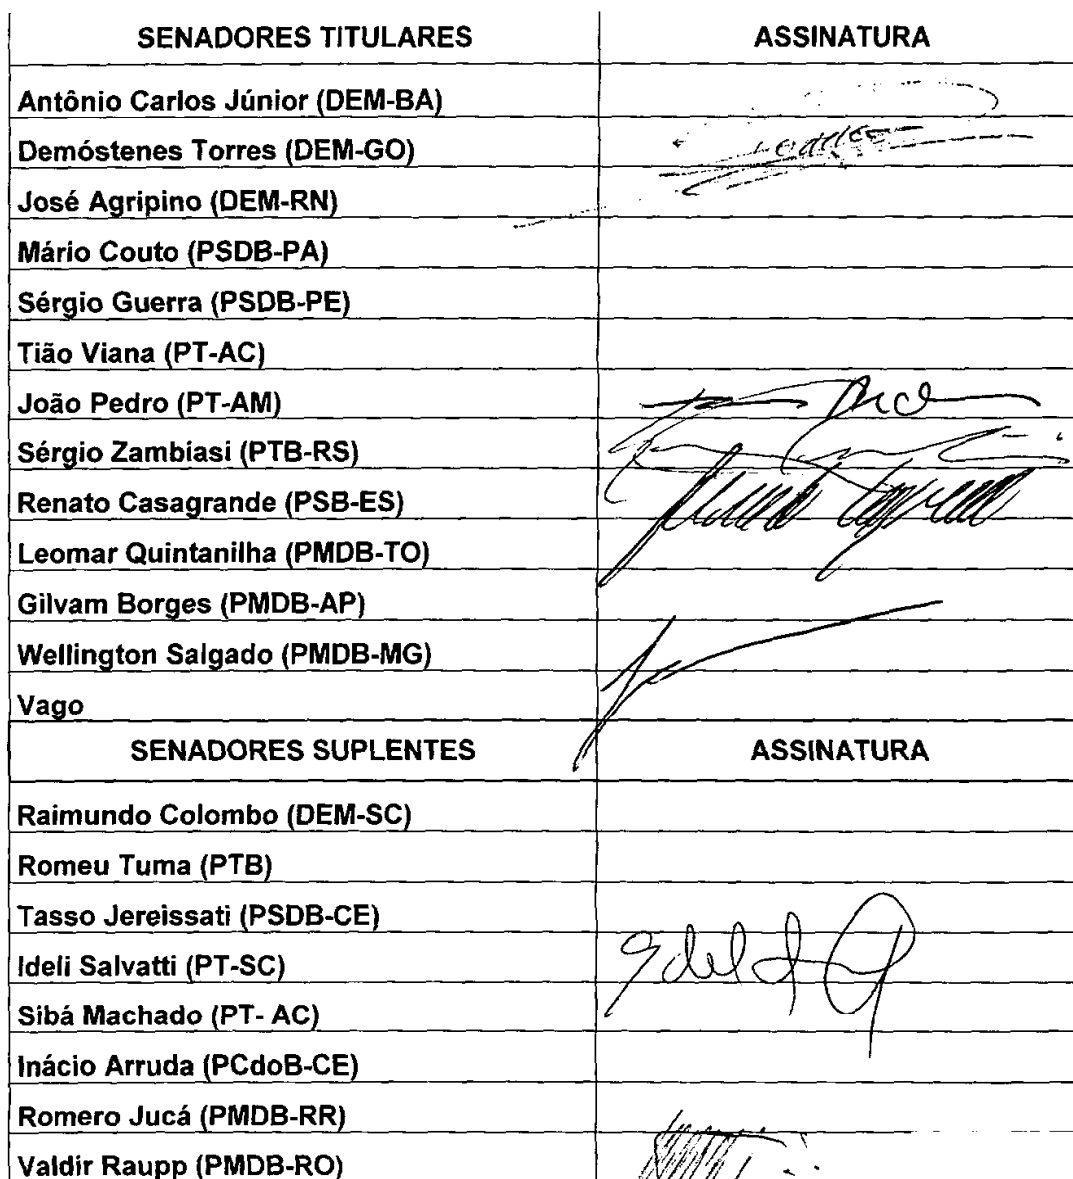 SENADORES TITULARES ASSINATURA
Antônio Carlos Júnior (DEM-BA)
Demóstenes Torres (DEM-GO)
José Agripino (DEM-RN)
Mário Couto (PSDB-PA)
Sérgio Guerra (PSDB-PE)
Tião Viana (PT-AC)
João Pedro (PT-AM)
Sérgio Zambiasi (PTB-RS)
Renato Casagrande (PSB-ES)
Leomar Quintanilha (PMDB-TO)
Gilvam Borges (PMDB-AP)
Wellington Salgado (PMDB-MG)
Vago
SENADORES SUPLENTES ASSINATURA
Raimundo Colombo (DEM-SC)
Romeu Tuma (PTB)
Tasso Jereissati (PSDB-CE)
Ideli Salvatti (PT-SC)
Sibá Machado (PT- AC)
Inácio Arruda (PCdoB-CE)
Romero Jucá (PMDB-RR)
Valdir Raupp (PMDB-RO)